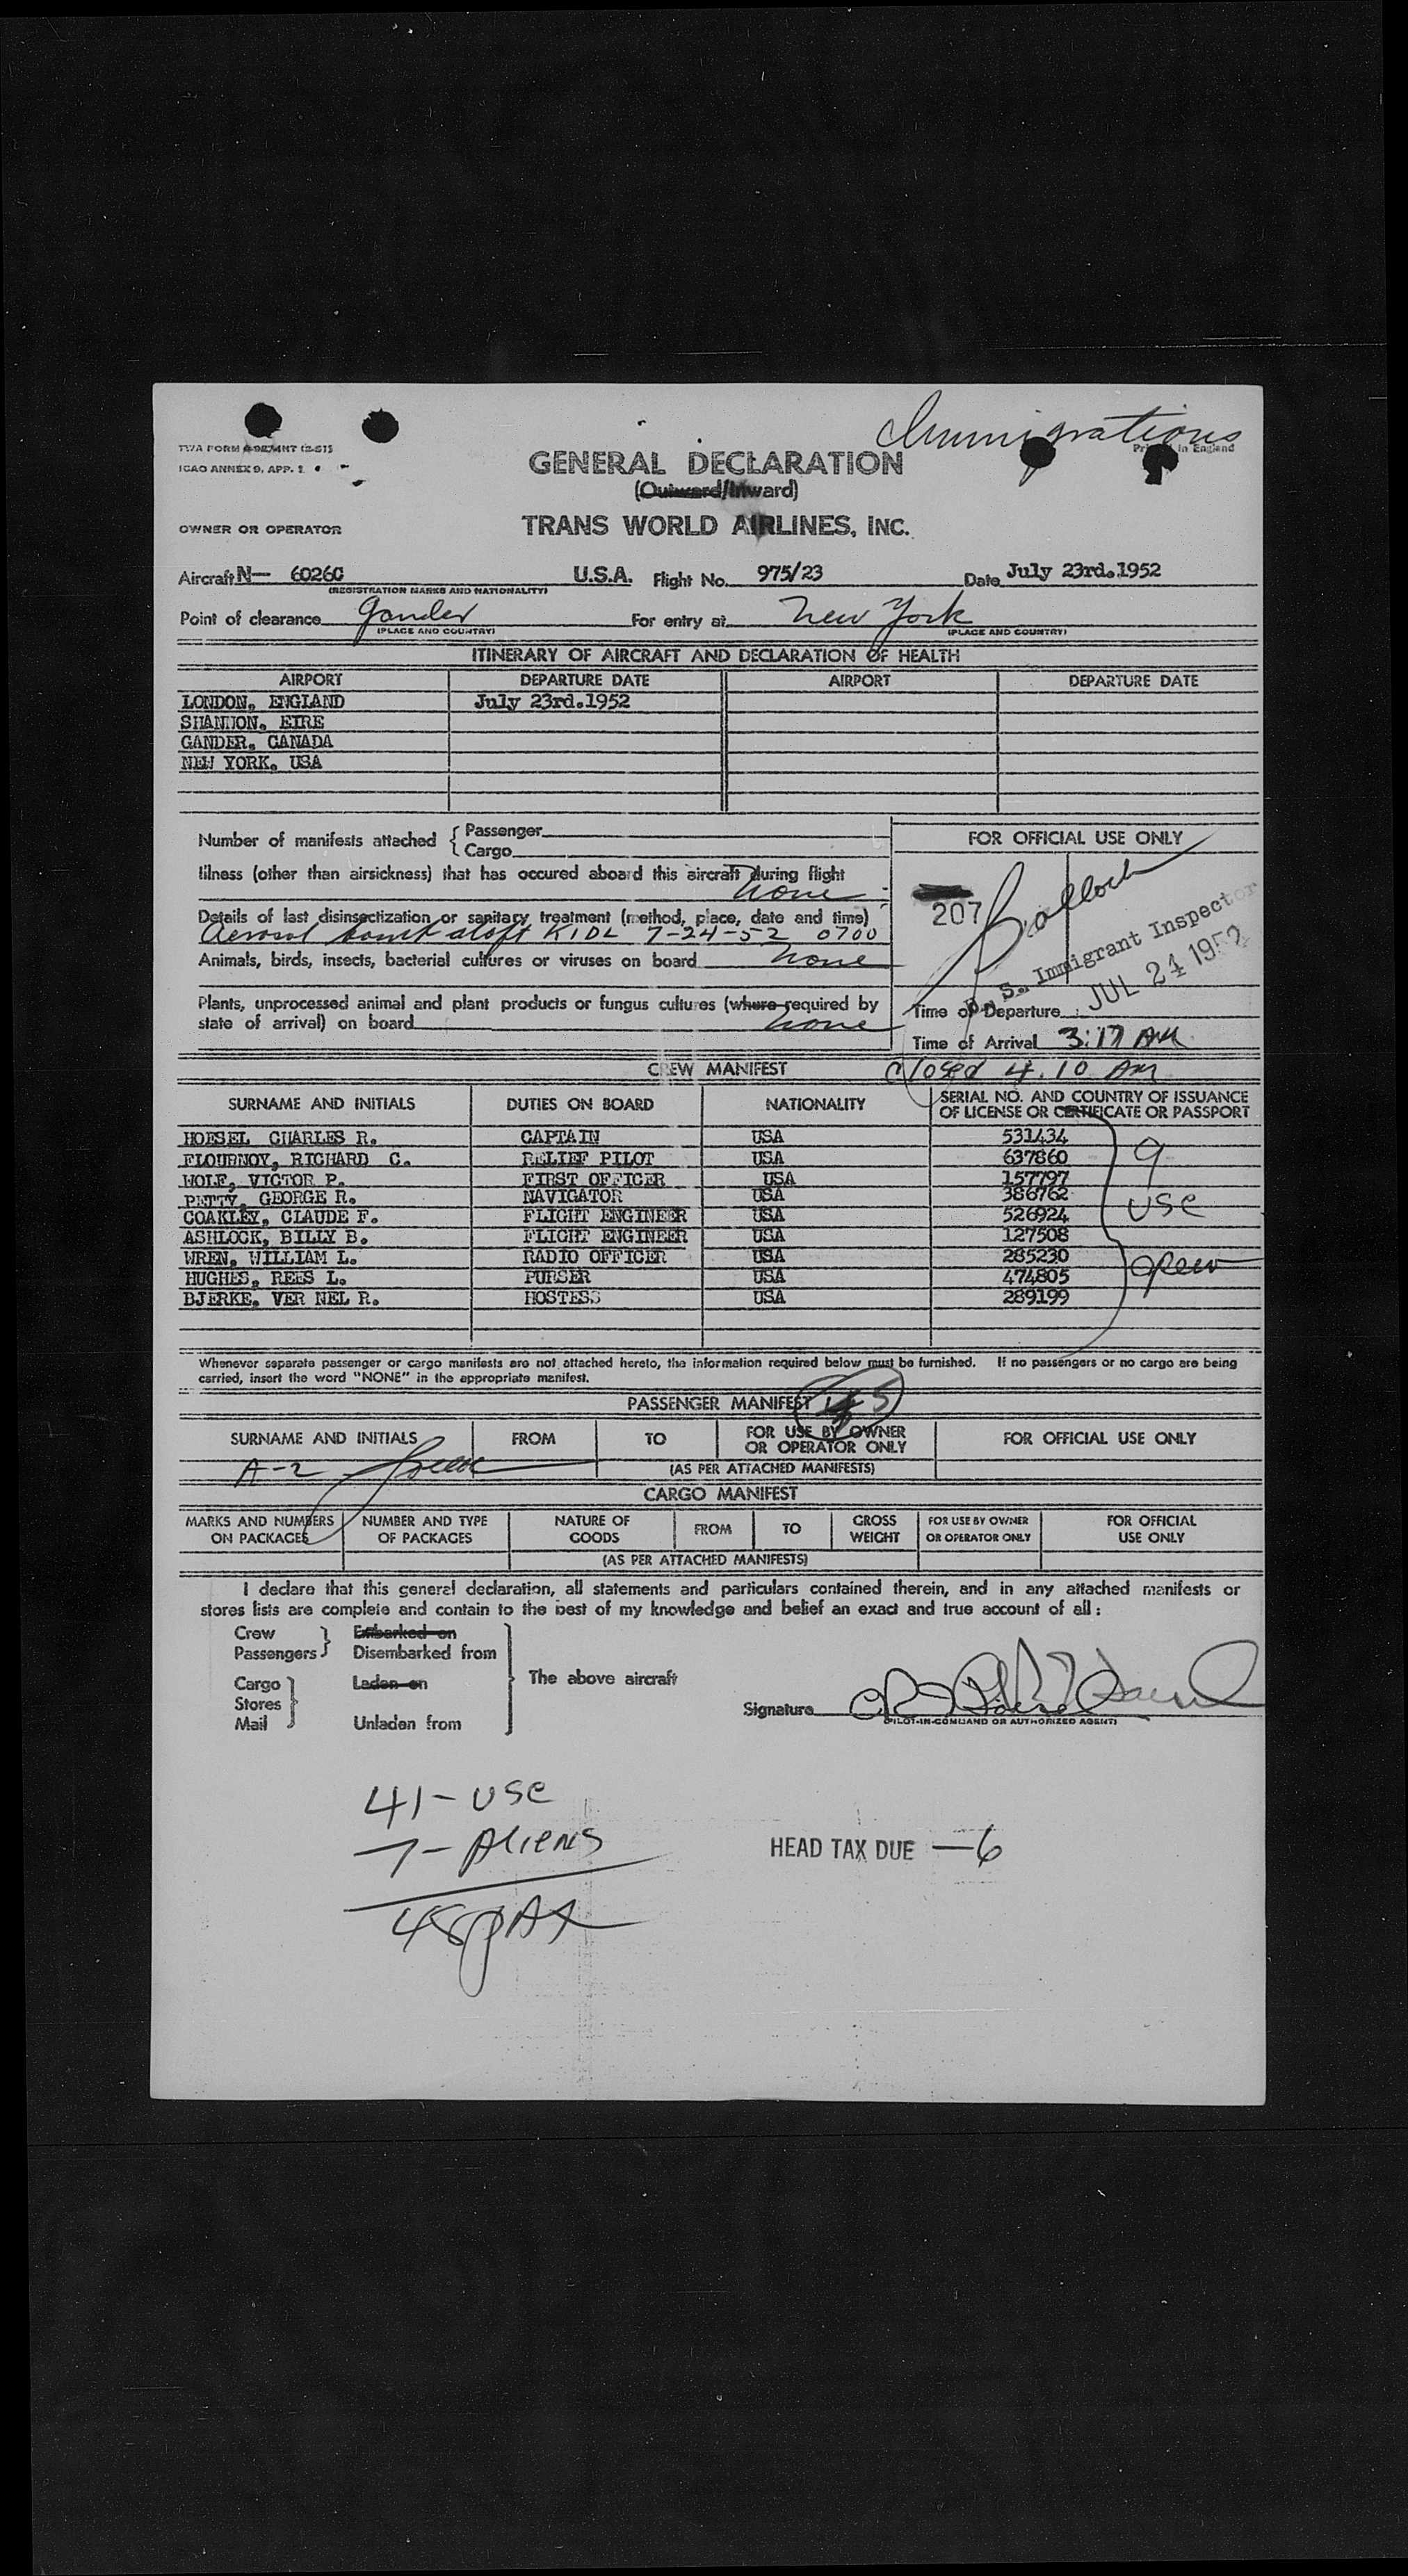 Immigrations
TWA FORM
ICAO ANNEX 9, APP. 1
in England
GENERAL DECLARATION
(Outward/Inward)
OWNER OR OPERATOR TRANS WORLD AIRLINES, INC.
Aircraft N— 6026C U.S.A. Flight No. 975/23 Date July 23rd.1952
(REGISTRATION MARKS AND NATIONALITY)
Point of clearance Gander For entry at New York
(PLACE AND COUNTRY) (PLACE AND COUNTRY)
ITINERARY OF AIRCRAFT AND DECLARATION OF HEALTH
AIRPORT DEPARTURE DATE AIRPORT DEPARTURE DATE
LONDON, ENGLAND July 23rd.1952
SHANNON, EIRE
GANDER, CANADA
NEW YORK, USA
Number of manifests attached { Passenger
Cargo
FOR OFFICIAL USE ONLY
Illness (other than airsickness) that has occured aboard this aircraft during flight
none
207
Details of last disinsectization or sanitary treatment (method, place, date and time)
Aerosol bomb aloft KIDL 7-24-52 0700
Animals, birds, insects, bacterial cultures or viruses on board none
U. S. Immigrant Inspector
JUL 24 1952
Plants, unprocessed animal and plant products or fungus cultures (where required by
state of arrival) on board none
Time of Departure
Time of Arrival 3:17 AM
CREW MANIFEST closed 4.10 AM
SURNAME AND INITIALS DUTIES ON BOARD NATIONALITY SERIAL NO. AND COUNTRY OF ISSUANCE
OF LICENSE OR CERTIFICATE OR PASSPORT
HOESEL CHARLES R. CAPTAIN USA 531434
FLOURNOY, RICHARD C. RELIEF PILOT USA 637860
WOLF, VICTOR P. FIRST OFFICER USA 157797
PETTY, GEORGE R. NAVIGATOR USA 386762
COAKLEY, CLAUDE F. FLIGHT ENGINEER USA 526924
ASHLOCK, BILLY B. FLIGHT ENGINEER USA 127508
WREN, WILLIAM L. RADIO OFFICER USA 285230
HUGHES, REES L. PURSER USA 474805
BJERKE, VER NEL R. HOSTESS USA 289199
9
USC
Crew
Whenever separate passenger or cargo manifests are not attached hereto, the information required below must be furnished. If no passengers or no cargo are being
carried, insert the word "NONE" in the appropriate manifest.
PASSENGER MANIFEST
SURNAME AND INITIALS FROM TO FOR USE BY OWNER
OR OPERATOR ONLY FOR OFFICIAL USE ONLY
A-2
(AS PER ATTACHED MANIFESTS)
CARGO MANIFEST
MARKS AND NUMBERS
ON PACKAGES NUMBER AND TYPE
OF PACKAGES NATURE OF
GOODS FROM TO GROSS
WEIGHT FOR USE BY OWNER
OR OPERATOR ONLY FOR OFFICIAL
USE ONLY
(AS PER ATTACHED MANIFESTS)
I declare that this general declaration, all statements and particulars contained therein, and in any attached manifests or
stores lists are complete and contain to the best of my knowledge and belief an exact and true account of all:
Crew Embarked on
Passengers Disembarked from
Cargo Laden on The above aircraft
Stores
Mail Unladen from
Signature
(PILOT-IN-COMMAND OR AUTHORIZED AGENT)
41 - USC
7 - Aliens
48 pAx
HEAD TAX DUE — 6